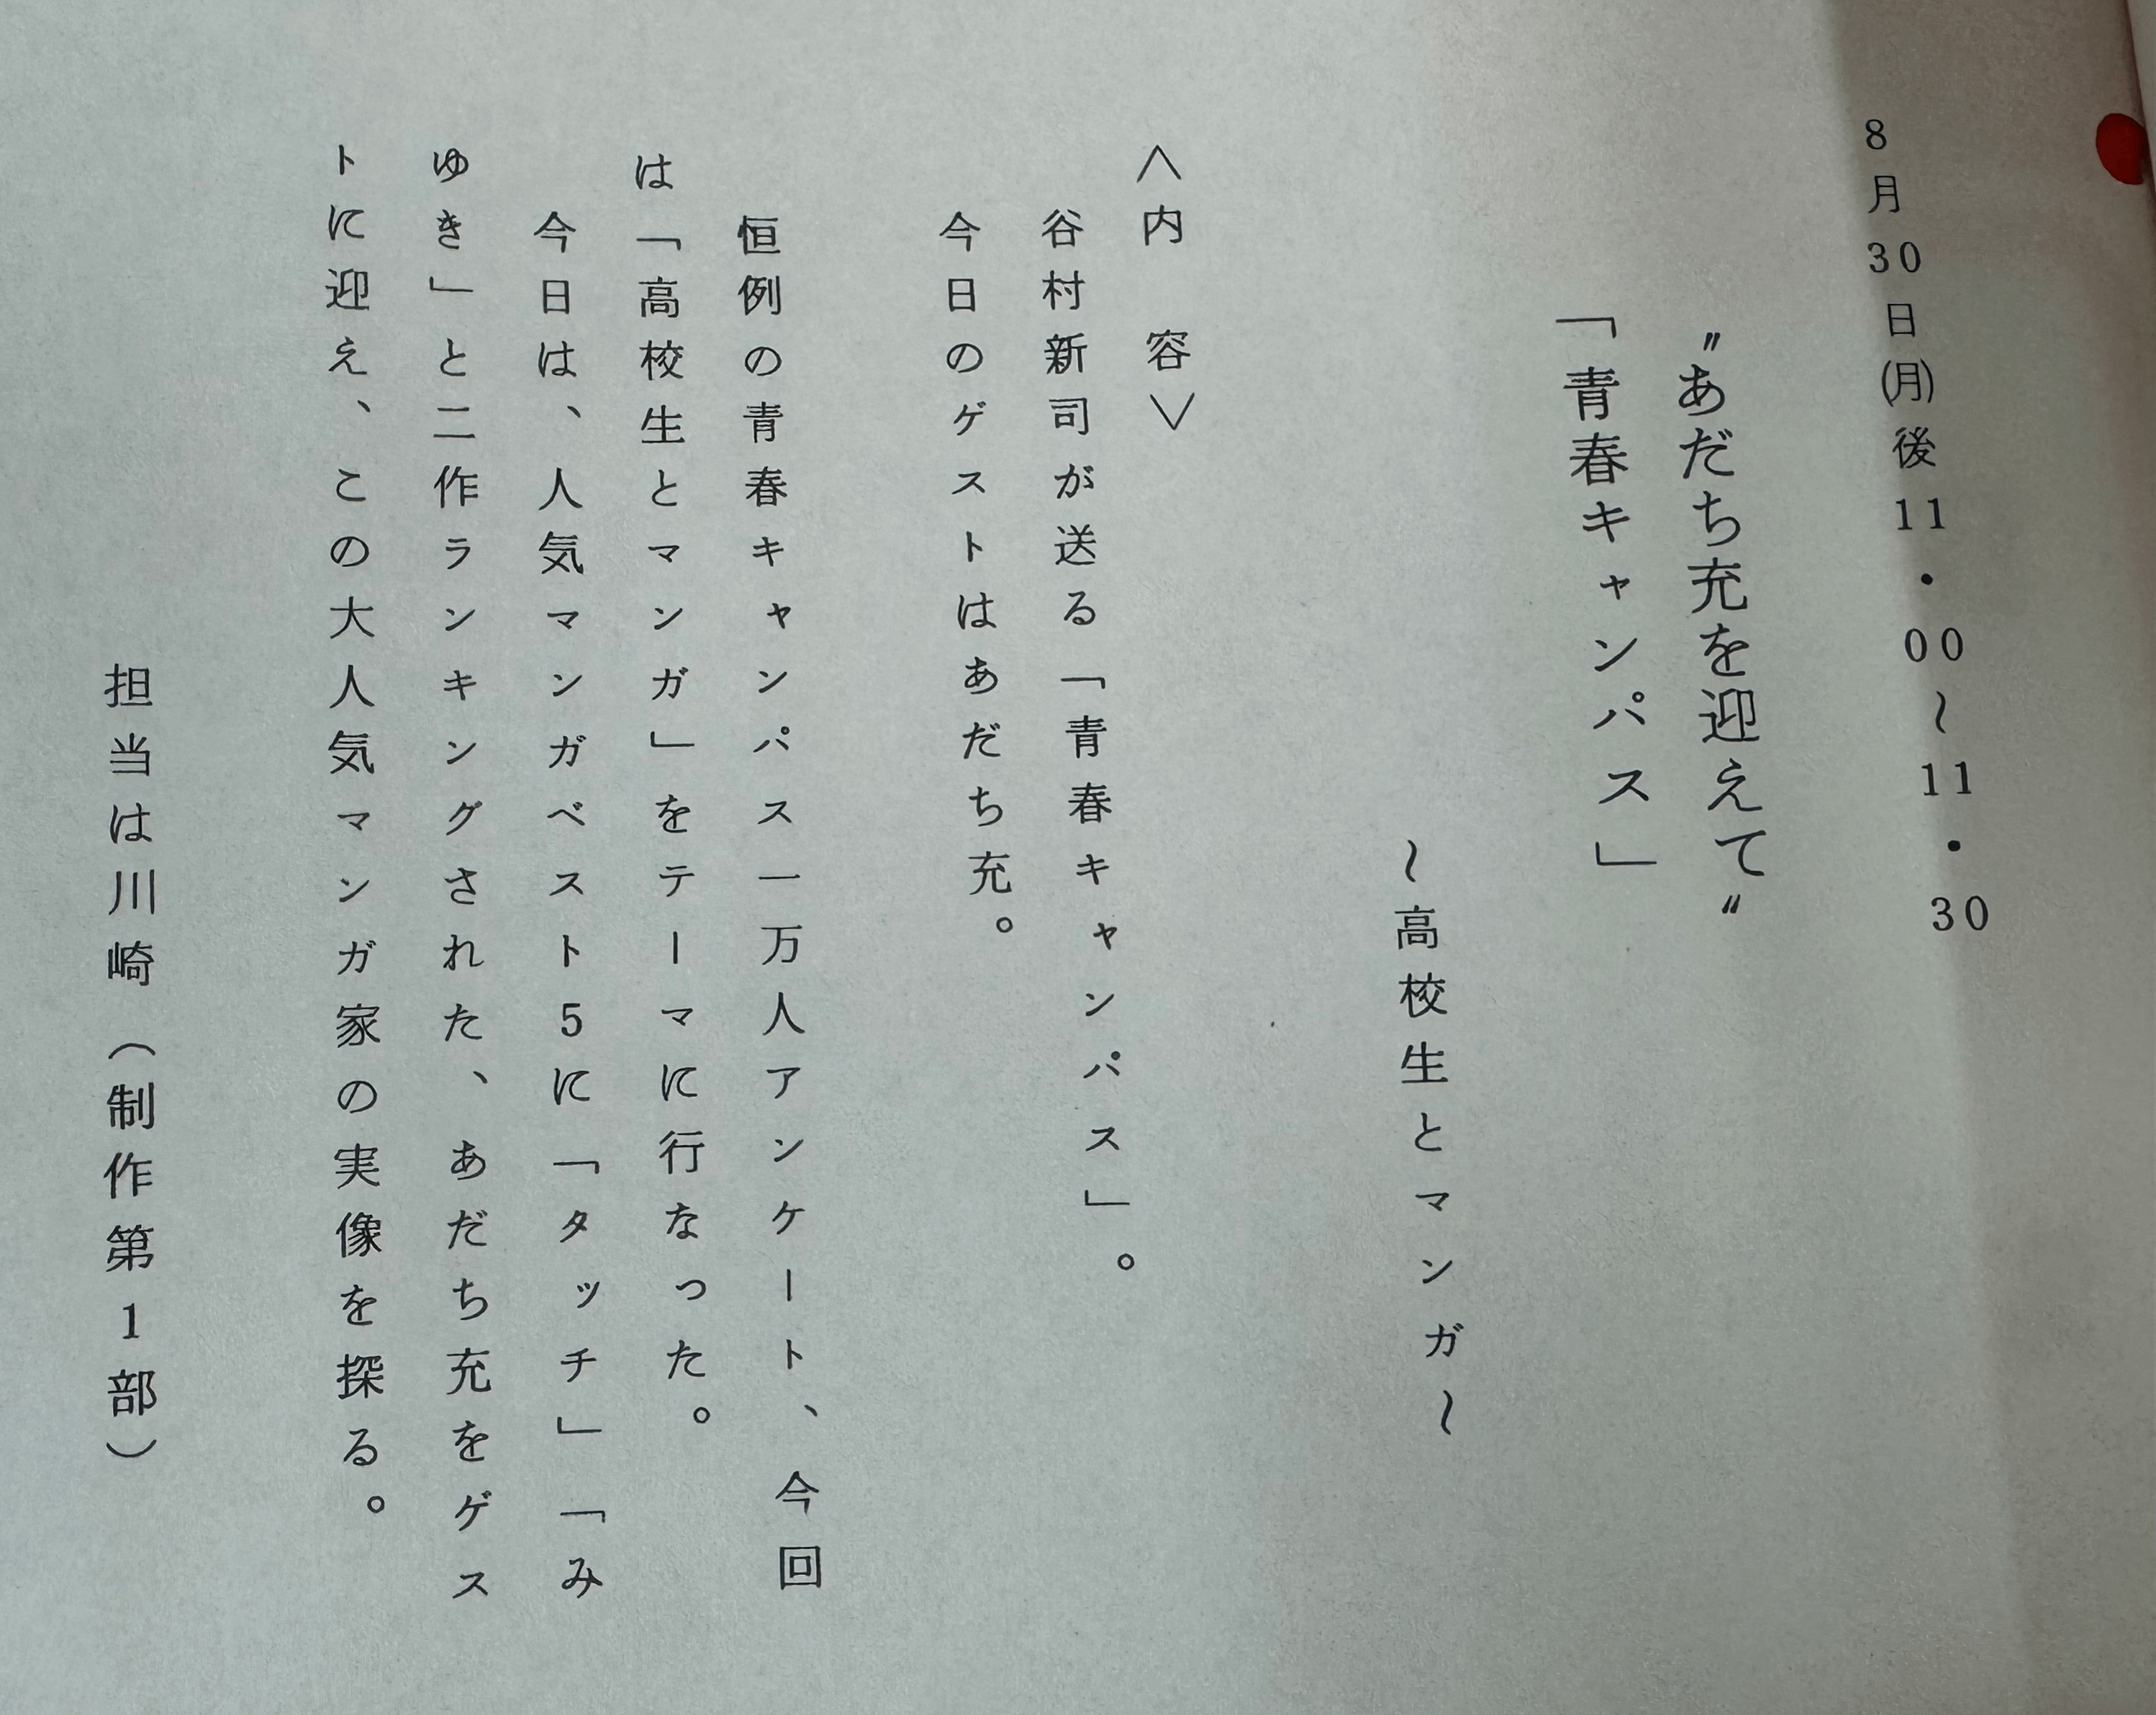 8月30日(月)後11・00〜11・30
〝あだち充を迎えて〟
「青春キャンパス」
〜高校生とマンガ〜
<内　容>
谷村新司が送る「青春キャンパス」。
今日のゲストはあだち充。
恒例の青春キャンパス一万人アンケート、今回
は「高校生とマンガ」をテーマに行なった。
今日は、人気マンガベスト5に「タッチ」「み
ゆき」と二作ランキングされた、あだち充をゲス
トに迎え、この大人気マンガ家の実像を探る。
担当は川崎(制作第1部)